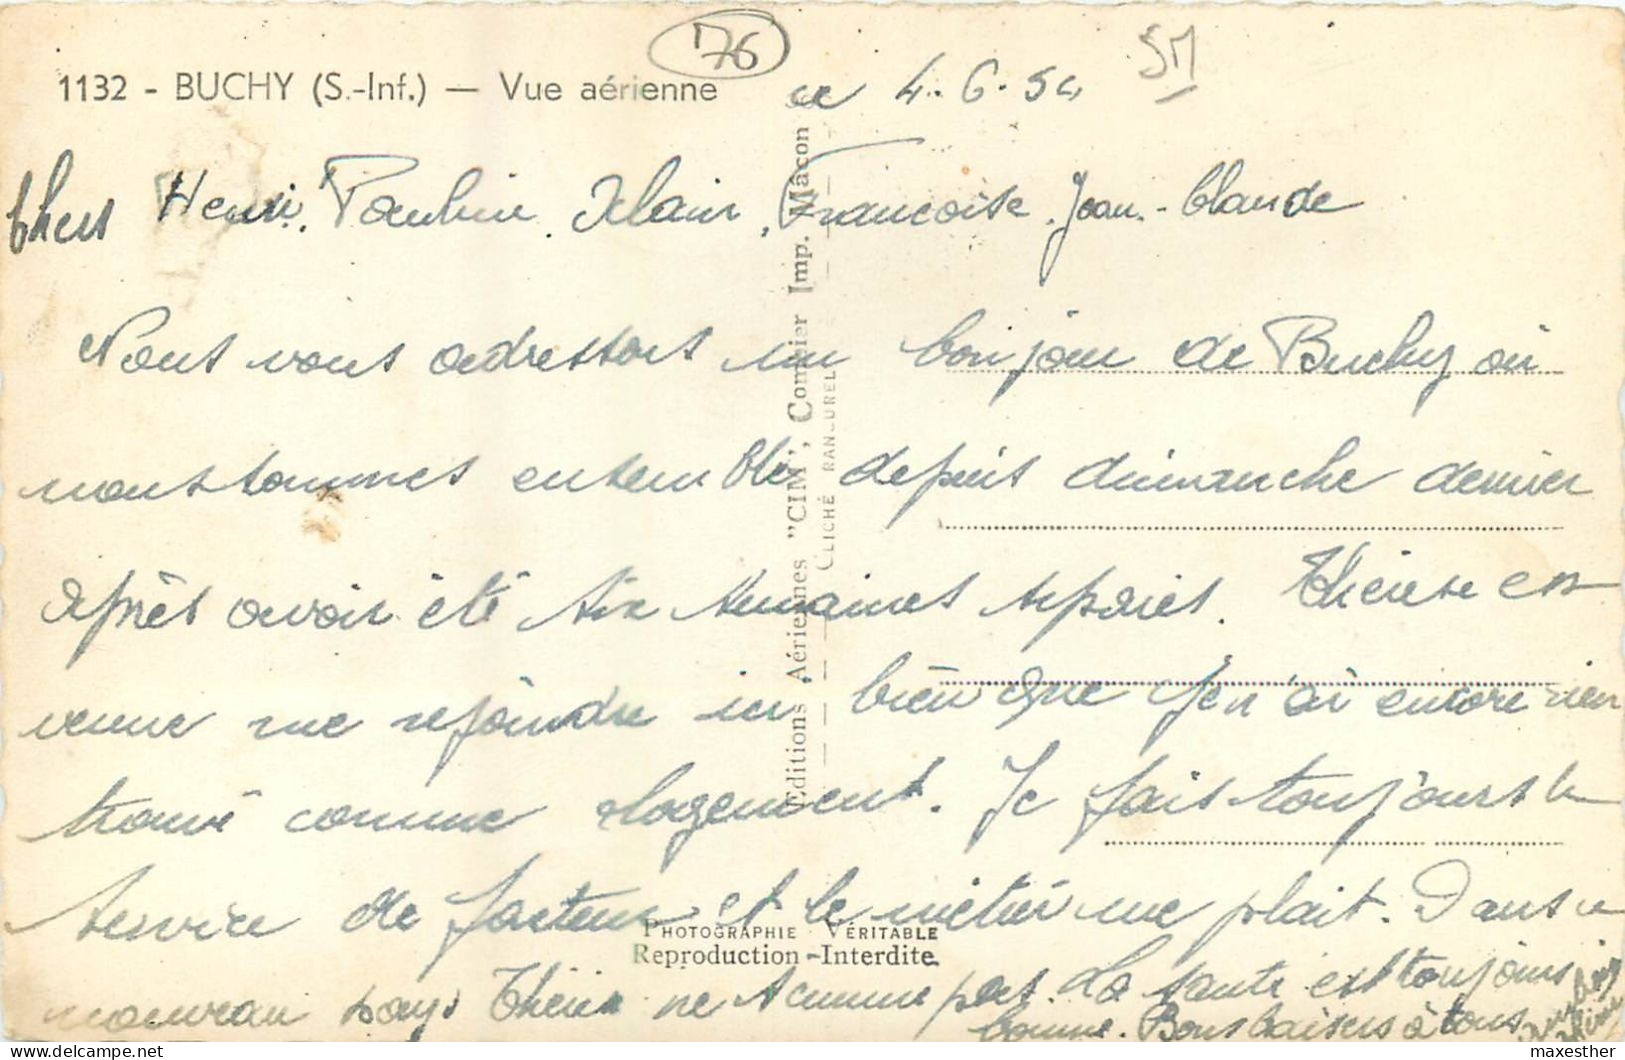 76
SM
1132 - BUCHY (S.-Inf.) — Vue aérienne
le 4.6.54
Chers Henri, Pauline, Alain, Françoise, Jean-Claude
Nous vous adressons un bonjour de Buchy où
nous sommes ensemble depuis dimanche dernier
après avoir été six semaines séparés. Thérèse est
venue me rejoindre ici bien que je n'ai encore rien
trouvé comme logement. Je fais toujours le
service de facteur et le métier me plait. Dans ce
nouveau pays Thérèse ne s'ennuie pas. La santé est toujours
bonne. Bons baisers à tous
Editions Aériennes "CIM", Combier Imp. Mâcon
CLICHÉ RANJUREL
PHOTOGRAPHIE VÉRITABLE
Reproduction Interdite
maxesther